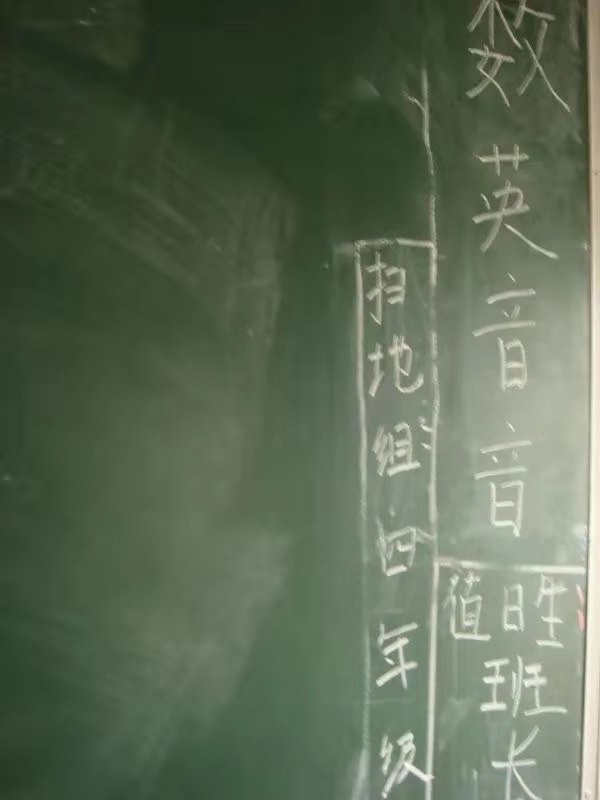 数英音音
值日生
班长
扫地组四年级